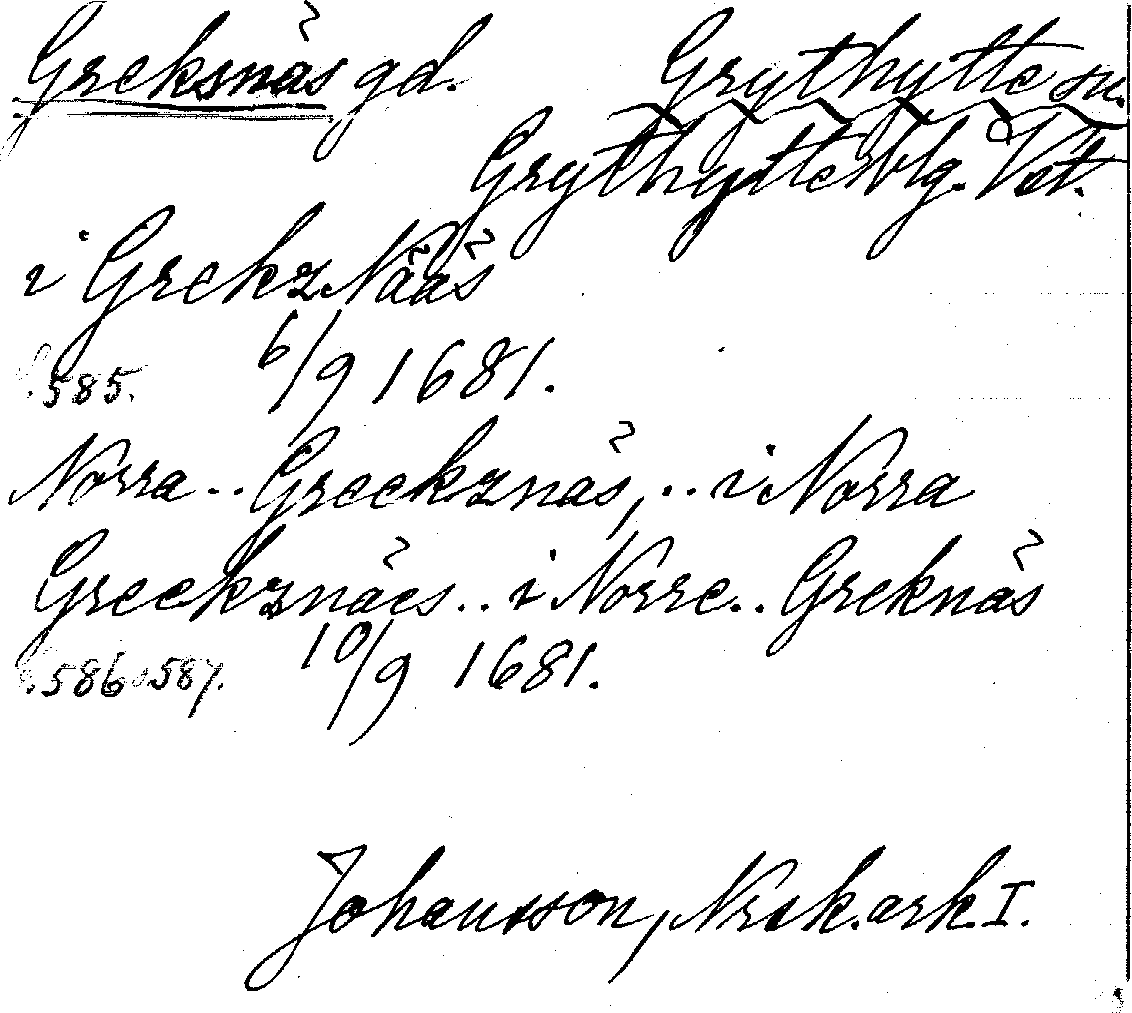 Greksnäs gd. Grythytte sn.
Grythytte blg. Vst.
i Grekz Nääs
s.585. 6/9 1681.
Norra .. Greekznäs, .. i Norra
Greekznäes .. i Norre .. Greknäs
s.586 o 587. 10/9 1681.
Johansson, Nrsk. ark I.